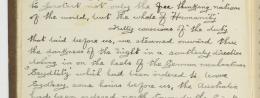 to protect not only the free thinking nations
of the world, but the whole of Humanity.
Fully conscious of the duty
that laid before us, we steamed onward thro
the darkness of the night in a southerly direction
closing in on the heels of the German merchantman
which had been ordered to leave
Sydney some hours before us, the Australia
had been ordered